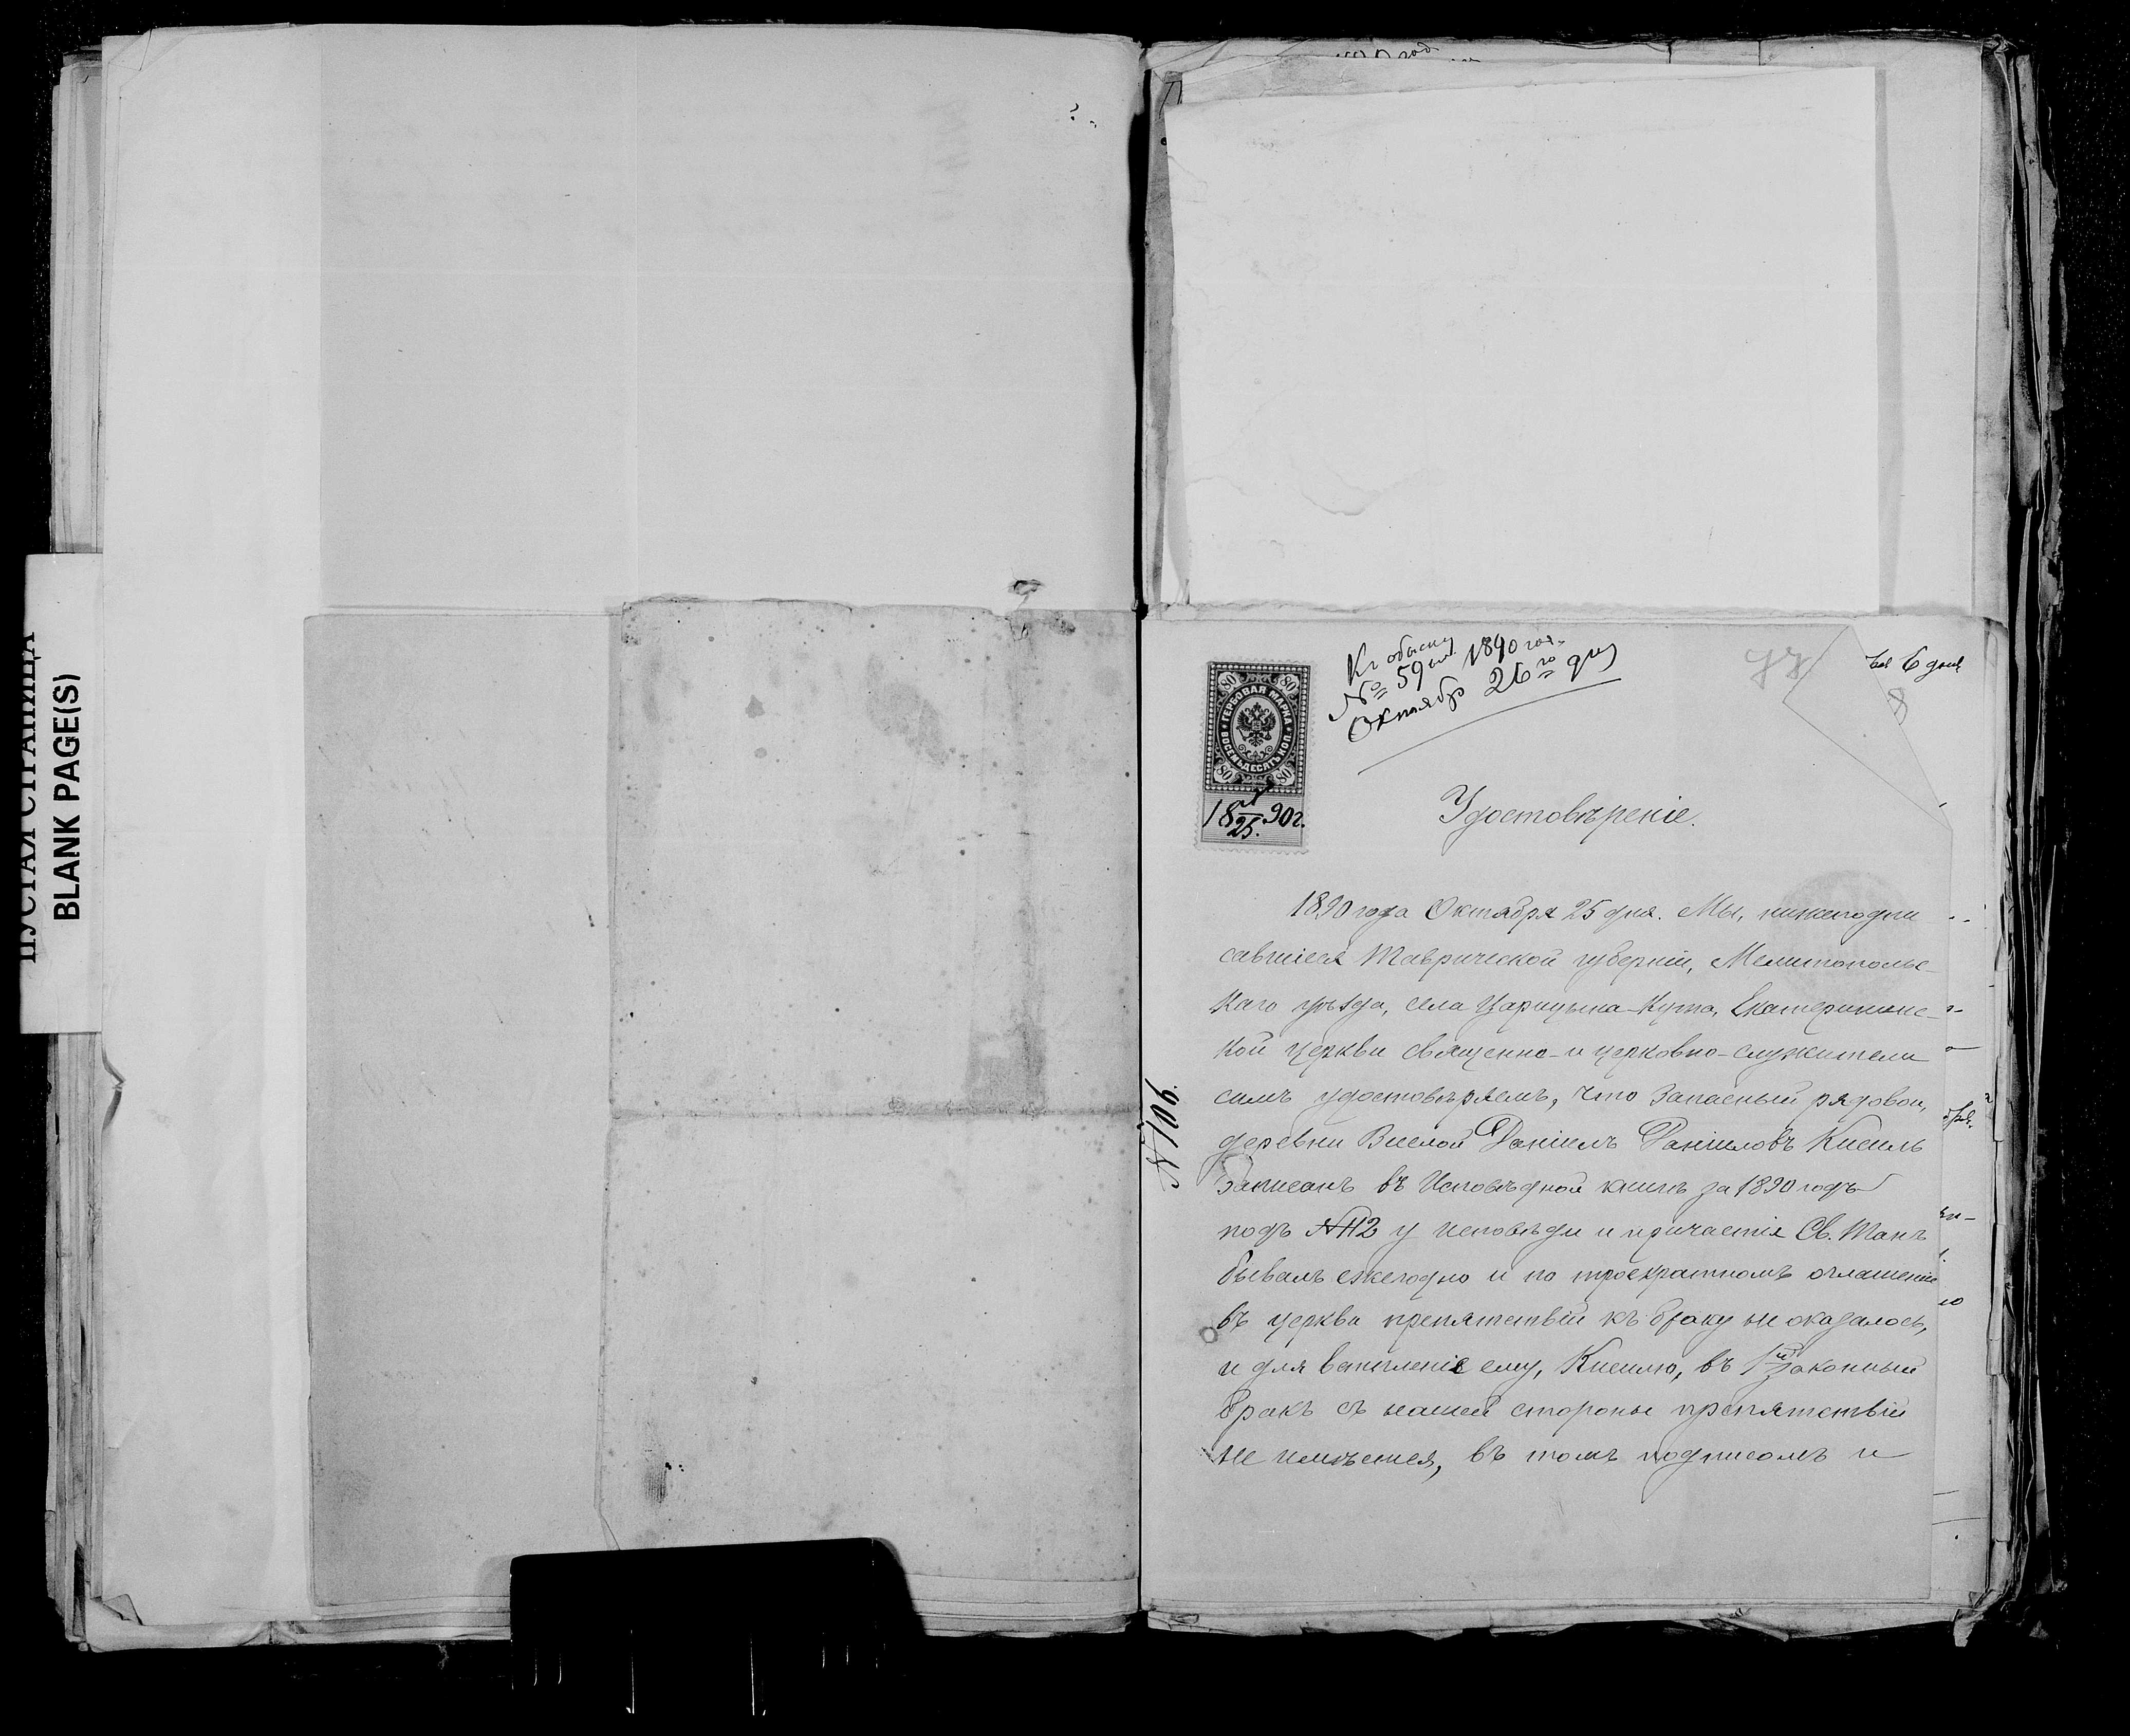 ПУСТАЯ СТРАНИЦА
BLANK PAGE(S)
Къ обыску
№ 59 1890 год.
Октябр 26го дня
80 80
ГЕРБОВАЯ МАРКА
ВОСЕМЬДЕСЯТЪ КОП.
80 80
18 25. 90 г.
6 дня
8
Удостовѣреніе.
1890 года Октября 25 дня. Мы, нижеподпи
савшіеся Таврической губерніи, Мелитопольс-
каго уѣзда, села Царицына-Кута, Екатерининс-
кой церкви священно- и церковно-служители
симъ удостовѣряемъ, что запасный рядовой,
деревни Веселой Даніилъ Даніиловъ Кисиль
Записанъ въ Исповѣдной книгѣ за 1890 годъ
подъ №112 у исповѣди и причастія Св. Таинъ
бывалъ ежегодно и по троекратномъ оглашеніи
въ церкви препятствій къ браку не оказалось,
и для вступленія ему, Кисилю, въ 1й законный
бракъ съ нашей стороны препятствій
не имѣется, въ томъ подписомъ и
№106.